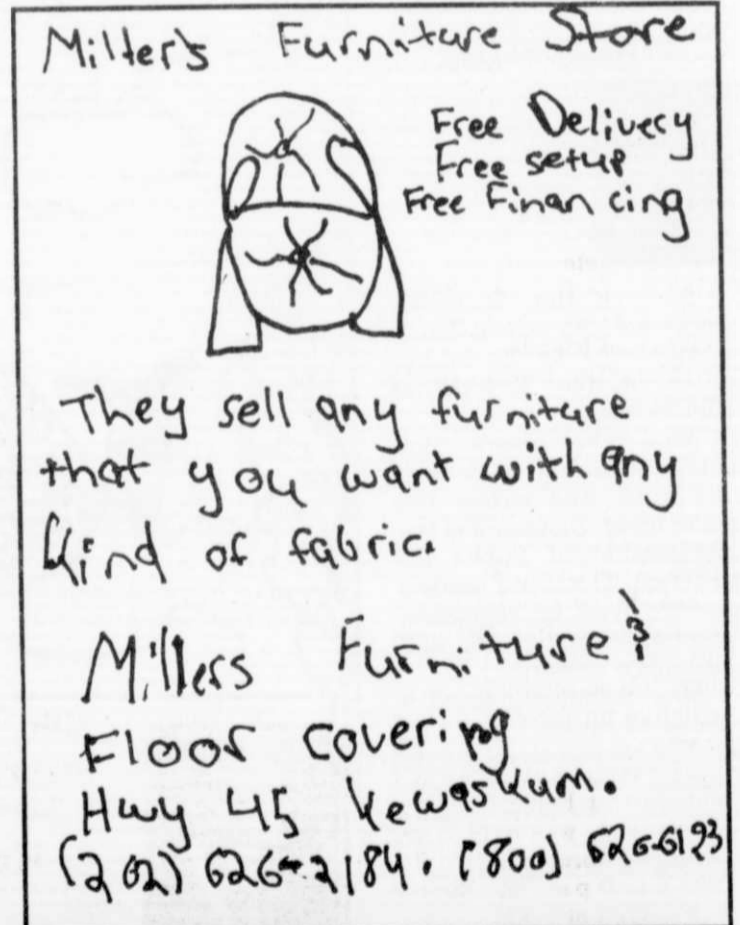 Miller's Furniture Store
Free Delivery
Free setup
Free Financing
They sell any furniture
that you want with any
kind of fabric.
Millers Furniture &
Floor covering
Hwy 45 Kewaskum.
(262) 626-2184. (800) 626-6193